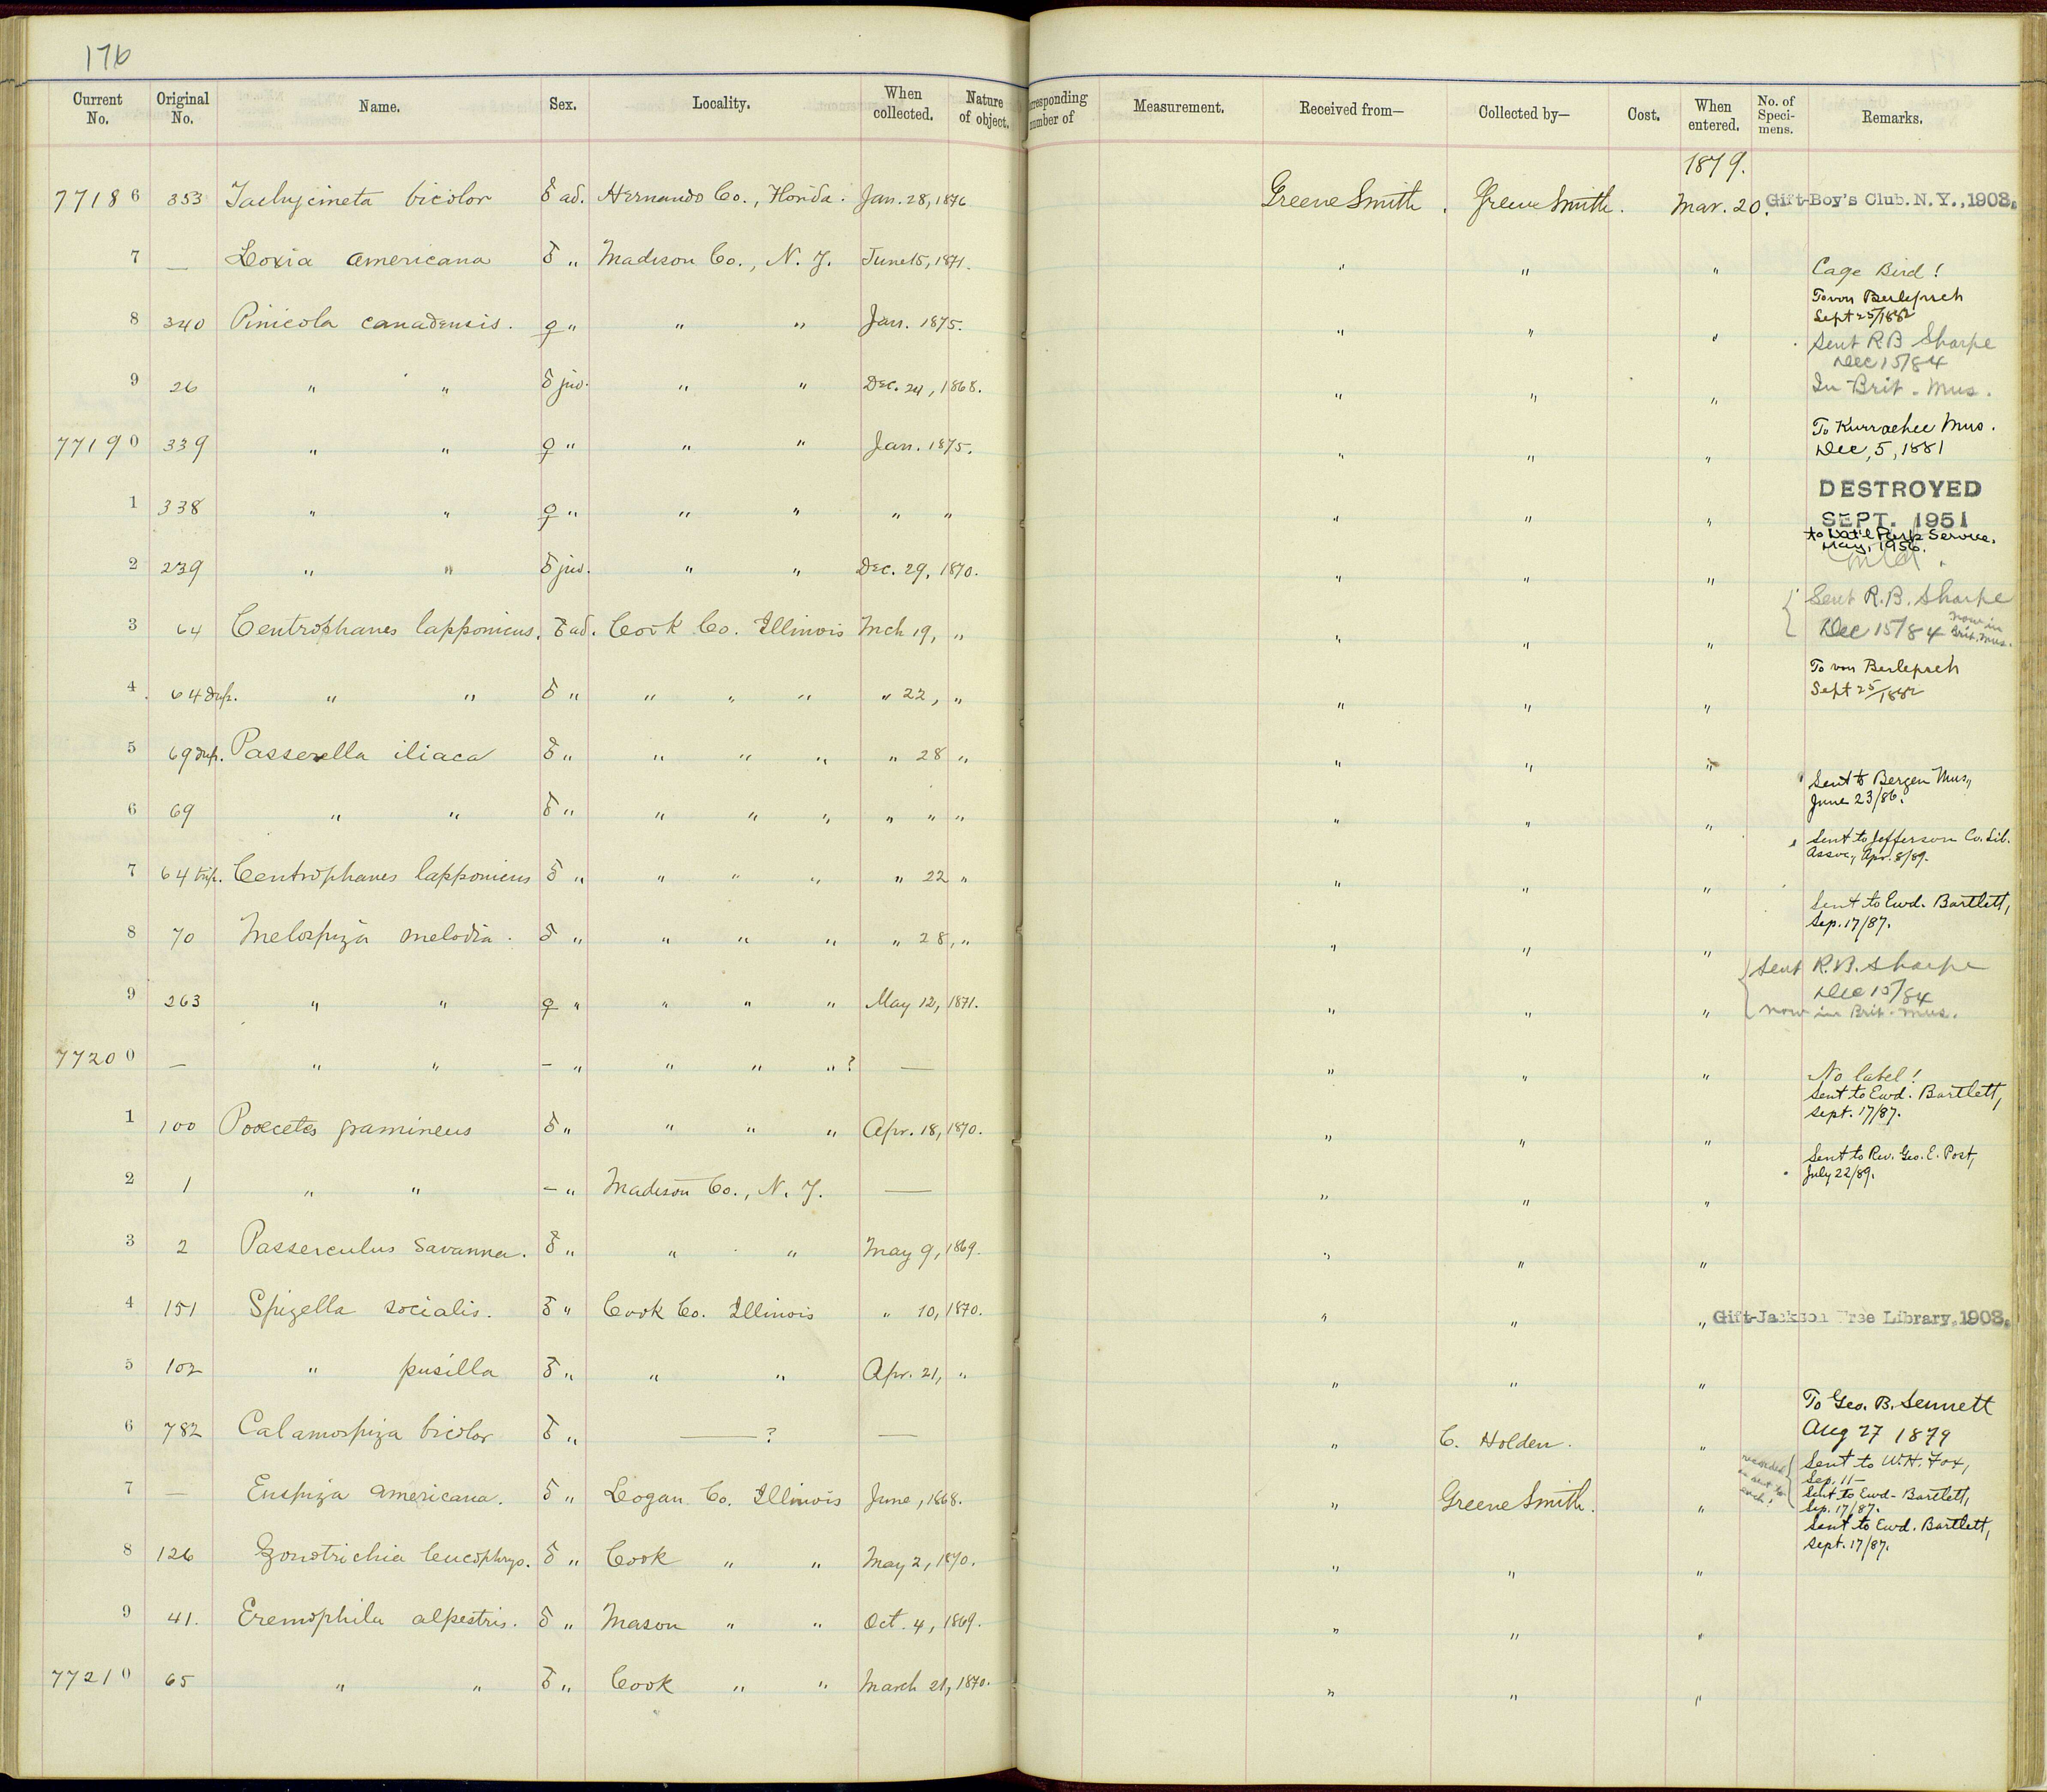 176
Current No. Original No. Name. Sex. Locality. When collected. Nature of object. rresponding number of Measurement. Received from— Collected by— Cost. When entered. No. of Speci-mens. Remarks.
1879.
77186 353 Tachycineta bicolor ♂ ad. Hernando Co., Florida. Jan. 28, 1876 Greene Smith. Greene Smith. Mar. 20. Gift-Boy's Club. N. Y., 1903.
7 — Loxia americana ♂ " Madison Co., N. Y. June 15, 1871. " " " Cage Bird!
8 340 Pinicola canadensis. ♀ " " " Jan. 1875. " " " To von Berlepsch
Sept 25/1882
9 26 " " ♂ juv. " " Dec. 24, 1868. " " " Sent R B Sharpe
Dec 15/84
In Brit. Mus.
77190 339 " " ♀ " " " Jan. 1875. " " " To Kurrachee Mus.
Dec, 5, 1881
1 338 " " ♀ " " " " " " " " DESTROYED
SEPT. 1951
2 239 " " ♂ juv. " " Dec. 29, 1870. " " " to Nat'l Park Service.
May, 1956.
3 64 Centrophanes lapponicus. ♂ ad. Cook Co. Illinois Mch 19, " " " " Sent R. B. Sharpe
Dec 15/84 now in Brit. Mus.
4 64 dup. " " ♂ " " " " " 22, " " " " To von Berlepsch
Sept 25/1882
5 69 dup. Passerella iliaca ♂ " " " " " 28 " " " "
6 69 " " ♂ " " " " " " " " " " Sent to Bergen Mus.,
June 23/86.
7 64 trip. Centrophanes lapponicus ♂ " " " " " 22 " " " " Sent to Jefferson Co. Lib.
Assoc., Apr. 8/89.
8 70 Melospiza melodia. ♂ " " " " " 28, " " " " Sent to Ewd. Bartlett,
Sep. 17/87.
9 263 " " ♀ " " " " May 12, 1871. " " " Sent R. B. Sharpe
Dec 15/84
now in Brit. Mus.
77200 — " " – " " " " ? — " " " No label!
1 100 Pooecetes gramineus ♂ " " " " Apr. 18, 1870. " " " Sent to Ewd. Bartlett,
Sept. 17/87.
2 1 " " – " Madison Co., N. Y. — " " " Sent to Rev. Geo. E. Post,
July 22/89.
3 2 Passerculus savanna. ♂ " " " May 9, 1869. " " "
4 151 Spizella socialis. ♂ " Cook Co. Illinois " 10, 1870. " " " Gift-Jackson Free Library, 1903.
5 102 " pusilla ♂ " " " Apr. 21, " " " "
6 782 Calamospiza bicolor ♂ " — ? — " C. Holden. " To Geo. B. Sennett
Aug 27 1879
7 — Euspiza americana. ♂ " Logan Co. Illinois June, 1868. " Greene Smith. " recorded as sent to each! Sent to W. H. Fox,
Sep. 11–
Sent to Ewd. Bartlett,
Sep. 17/87.
8 126 Zonotrichia leucophrys. ♂ " Cook " " May 2, 1870. " " " Sent to Ewd. Bartlett,
Sept. 17/87.
9 41. Eremophila alpestris. ♂ " Mason " " Oct. 4, 1869. " " "
77210 65 " " ♂ " Cook " " March 21, 1870. " " "